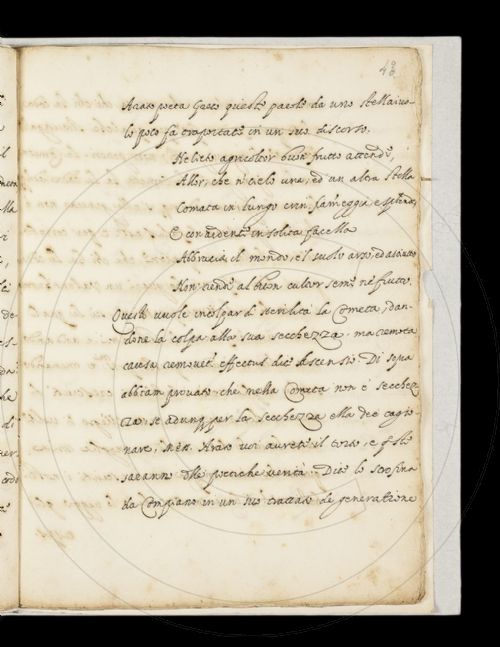 48
Arato poeta Greco queste parole da uno stellaiuo-
lo poco fa traportate in un suo discorso.
Ne lieto agricoltor buon frutto attende,
Allor, che n cielo una, ed un altra stella
Comata in lungo crin fiameggia e splende,
E con ardente insolita facella
Abbrucia il mondo, e'l suolo arso, ed asciutto
Non rende al buon cultor seme ne frutto.
Questi vuole incolpar di sterilità la Cometa, dan-
done la colpa alla sua secchezza, ma remota
causa removetur effectus dice
Di sopra
abbiam provato che nella Cometa non è secchez
za se adunq per la secchezza ella dee cagio-
nare, Arato voi avrete il torto, e
saranno poetiche verità. Dice lo
da Compiano in un suo trattato de generatione